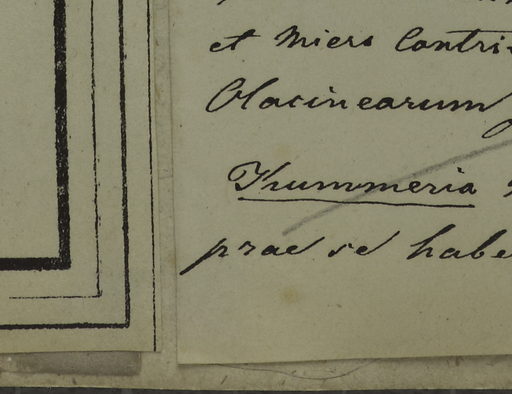 et Miers Contri
Olacinearum
Krummeria
prae se habe